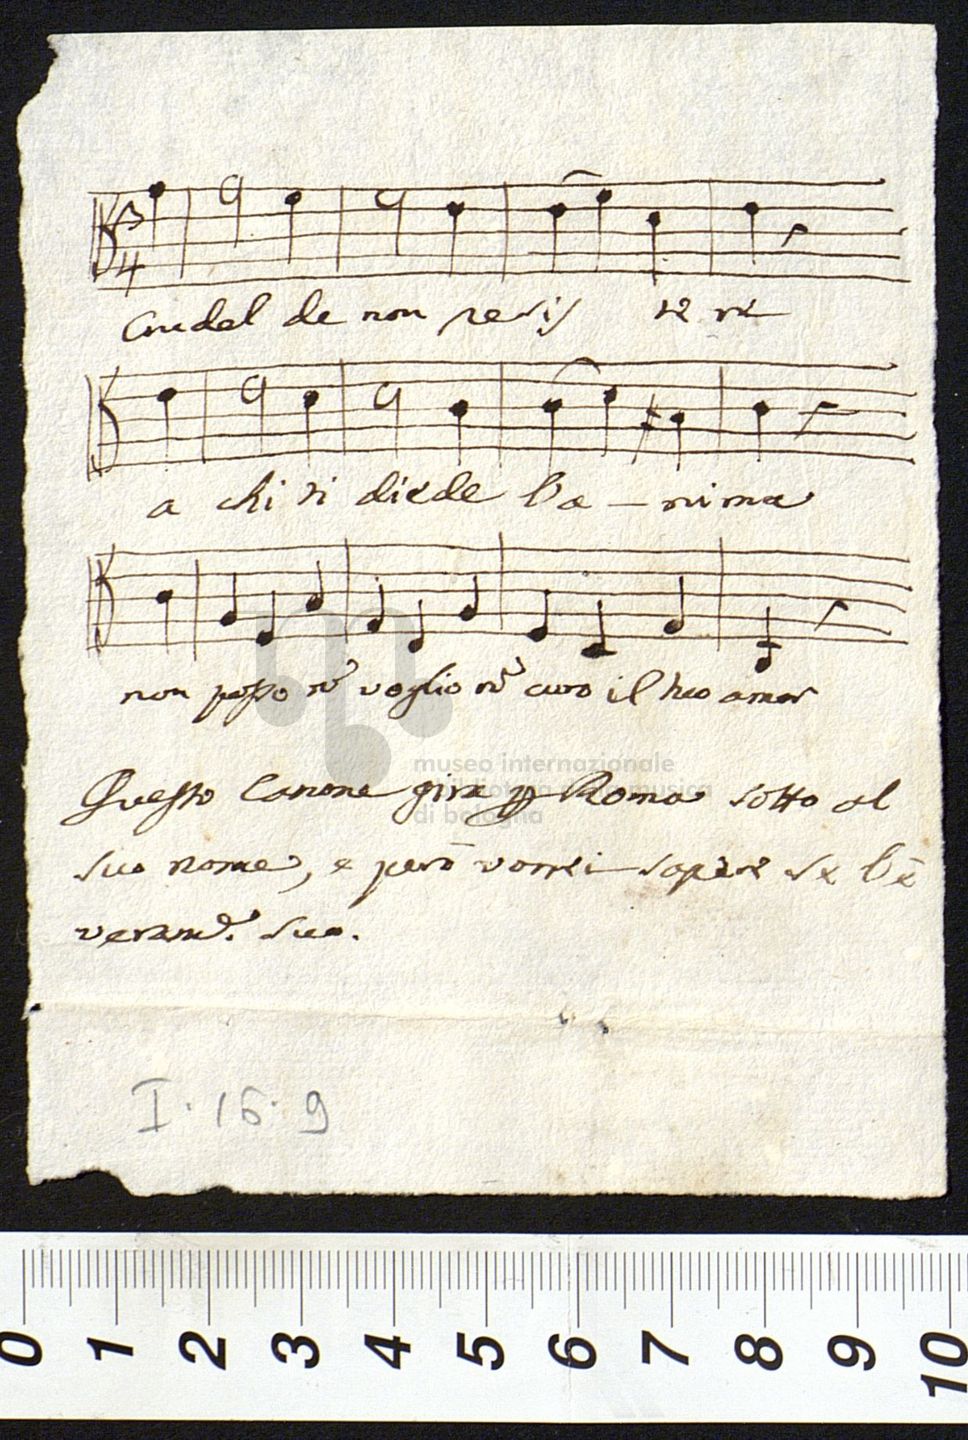 3
4
Crudel de non resis
a chi ti diede l'a - nima
non posso nō voglio nō curo il tuo amor
museo internazionale
di bologna
Questo Canone gira p Roma sotto al
suo nome, e però vorrei sapere se l'è
veramte. suo.
I. 16. 9
0 1 2 3 4 5 6 7 8 9 10